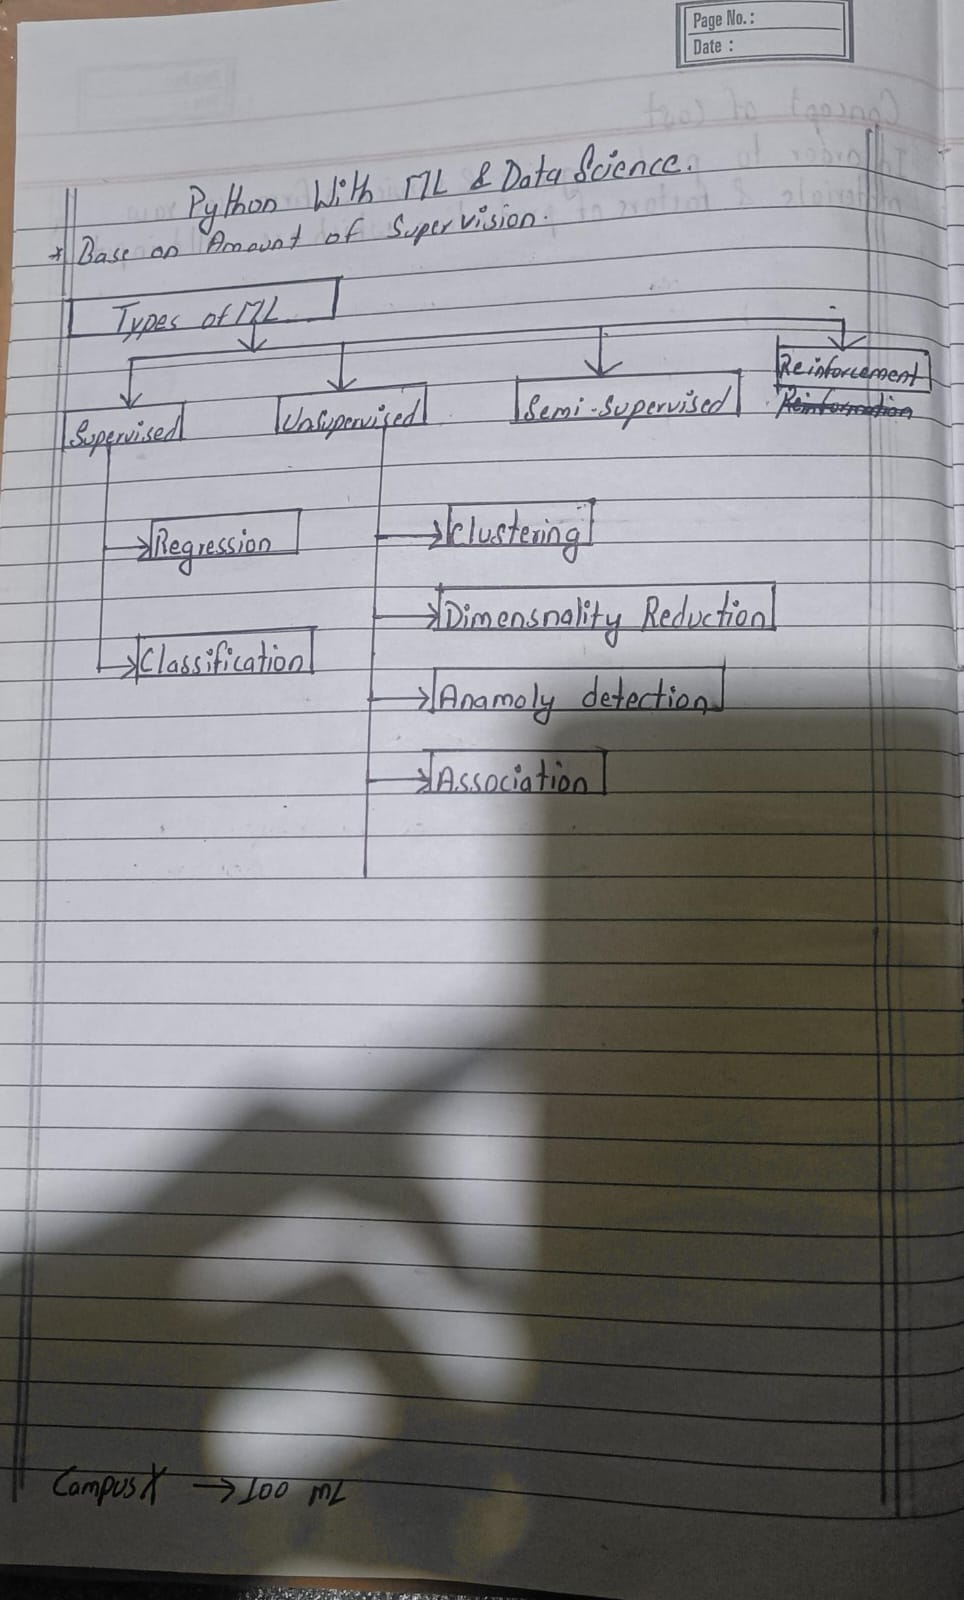 Page No.:
Date :
Python With ML & Data Science.
* Base on Amount of Supervision.
Types of ML
Supervised
Unsupervised
Semi-Supervised
Reinforcement
Reinformation
Regression
Classification
Clustering
Dimensnality Reduction
Anamoly detection
Association
CampusX → 100 ML